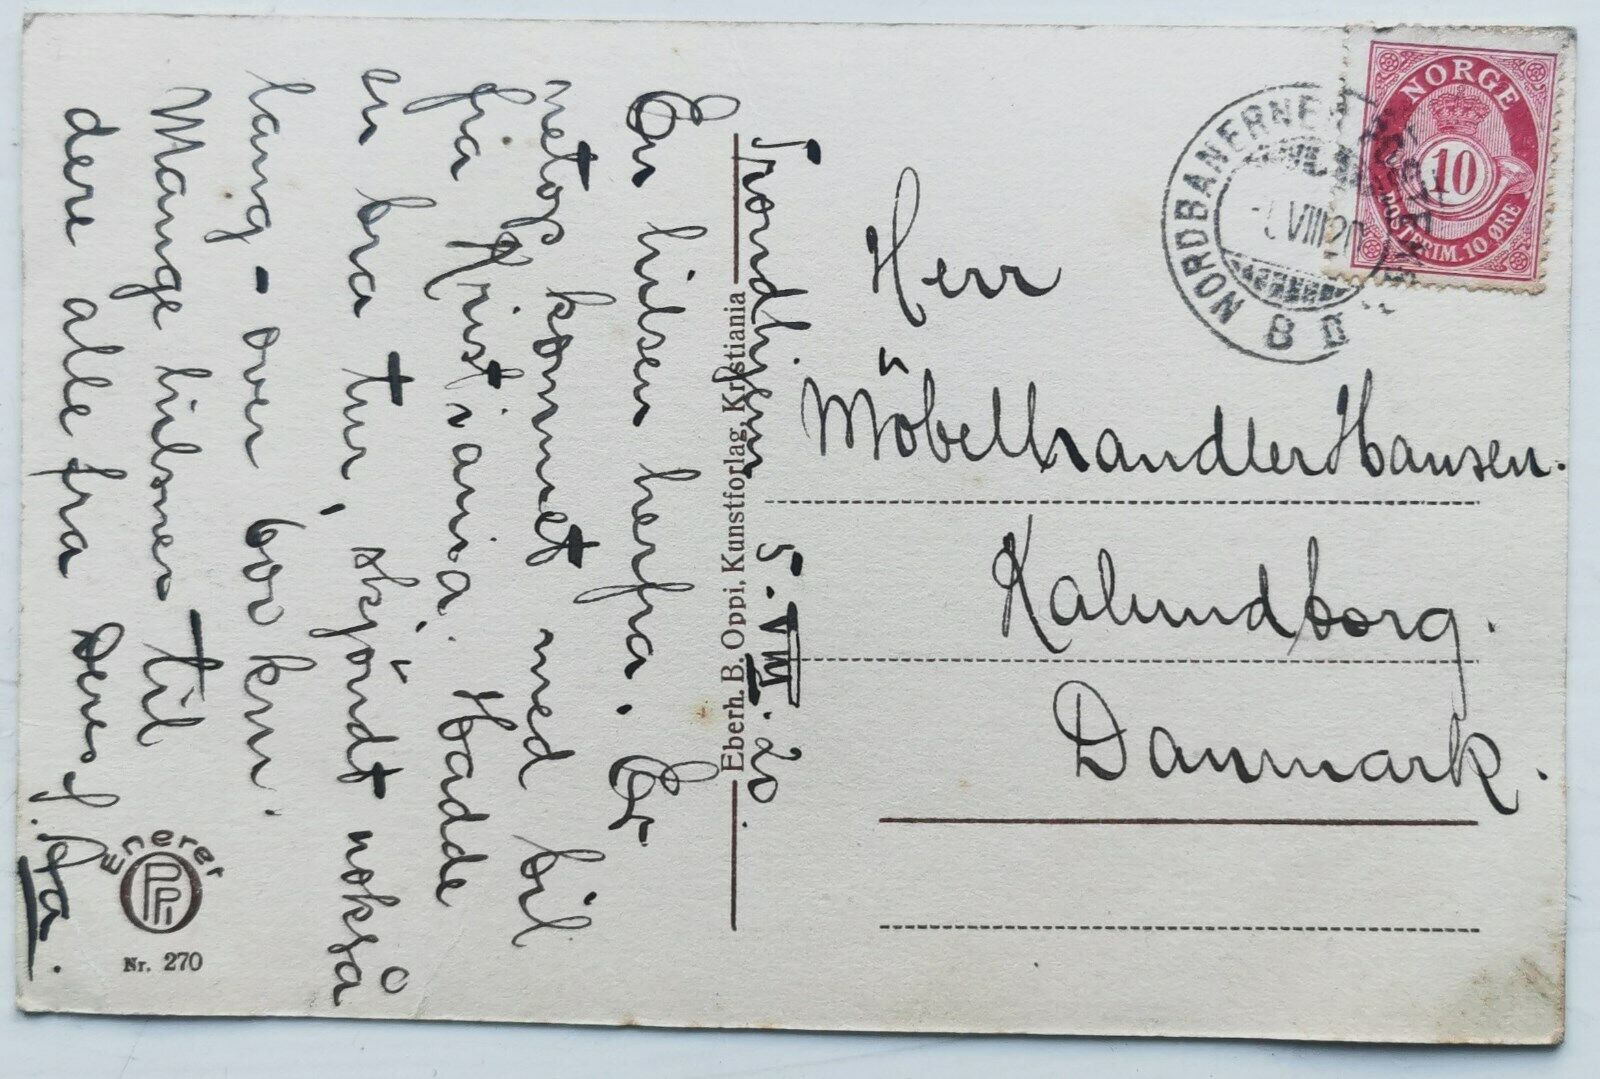 Trondhjem 5.VIII.20.
En hilsen herfra. Er
netop kommet med bil
fra Kristiania. Hadde
en bra tur, skjöndt nokså
lang - over 600 km.
Mange hilsner til
dere alle fra Deres
Eneret
OPPI
Nr. 270
Eberh. B. Oppi, Kunstforlag, Kristiania
NORGE
10
POSTFRIM. 10 ØRE
NORDBANERNES
VIII 20
B
Herr
Möbelhandler Hansen.
Kalundborg.
Danmark.